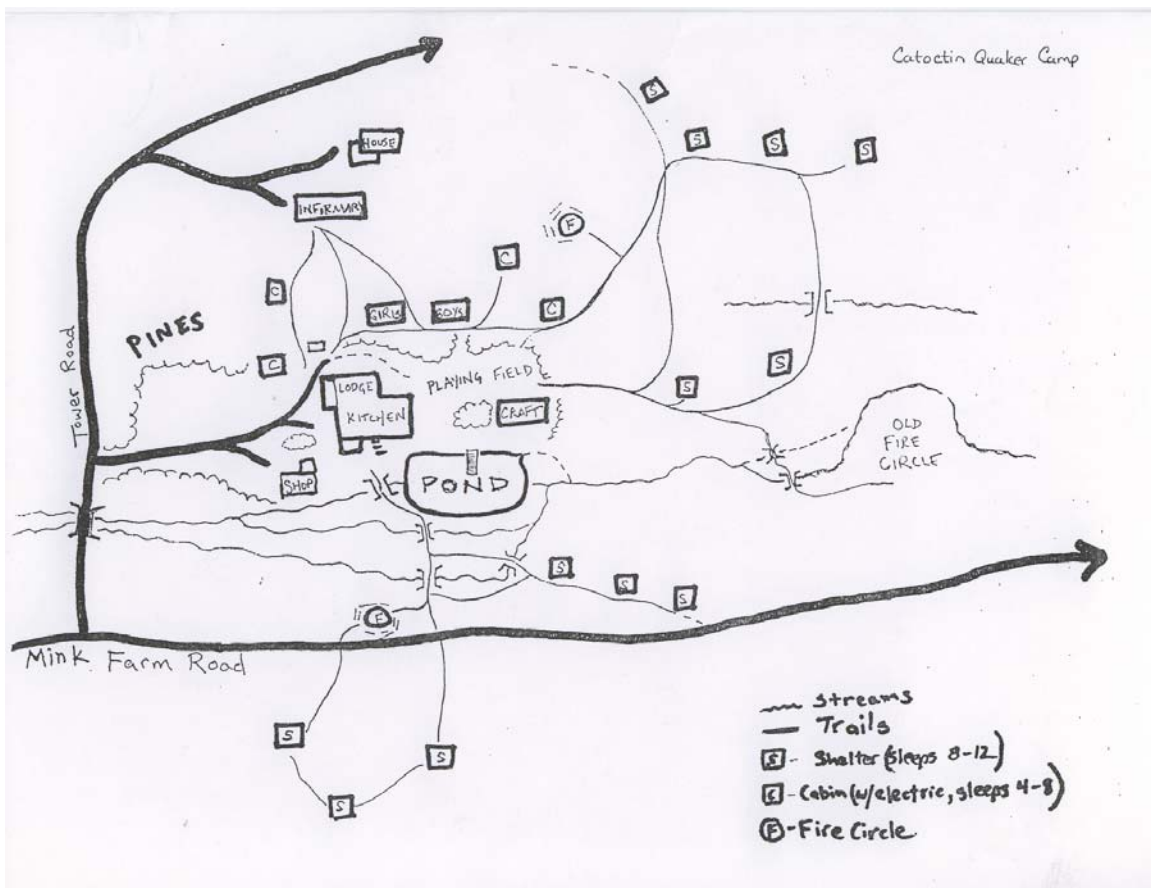 Catoctin Quaker Camp
S
HOUSE
S
S
S
INFIRMARY
F
C
C
PINES
GIRLS
BOYS
C
Tower Road
C
LODGE
KITCHEN
PLAYING FIELD
CRAFT
S
S
OLD
FIRE
CIRCLE
SHOP
POND
S
S
S
F
Mink Farm Road
S
S
S
streams
Trails
S - Shelter (sleeps 8-12)
C - Cabin (w/electric, sleeps 4-8)
F - Fire Circle